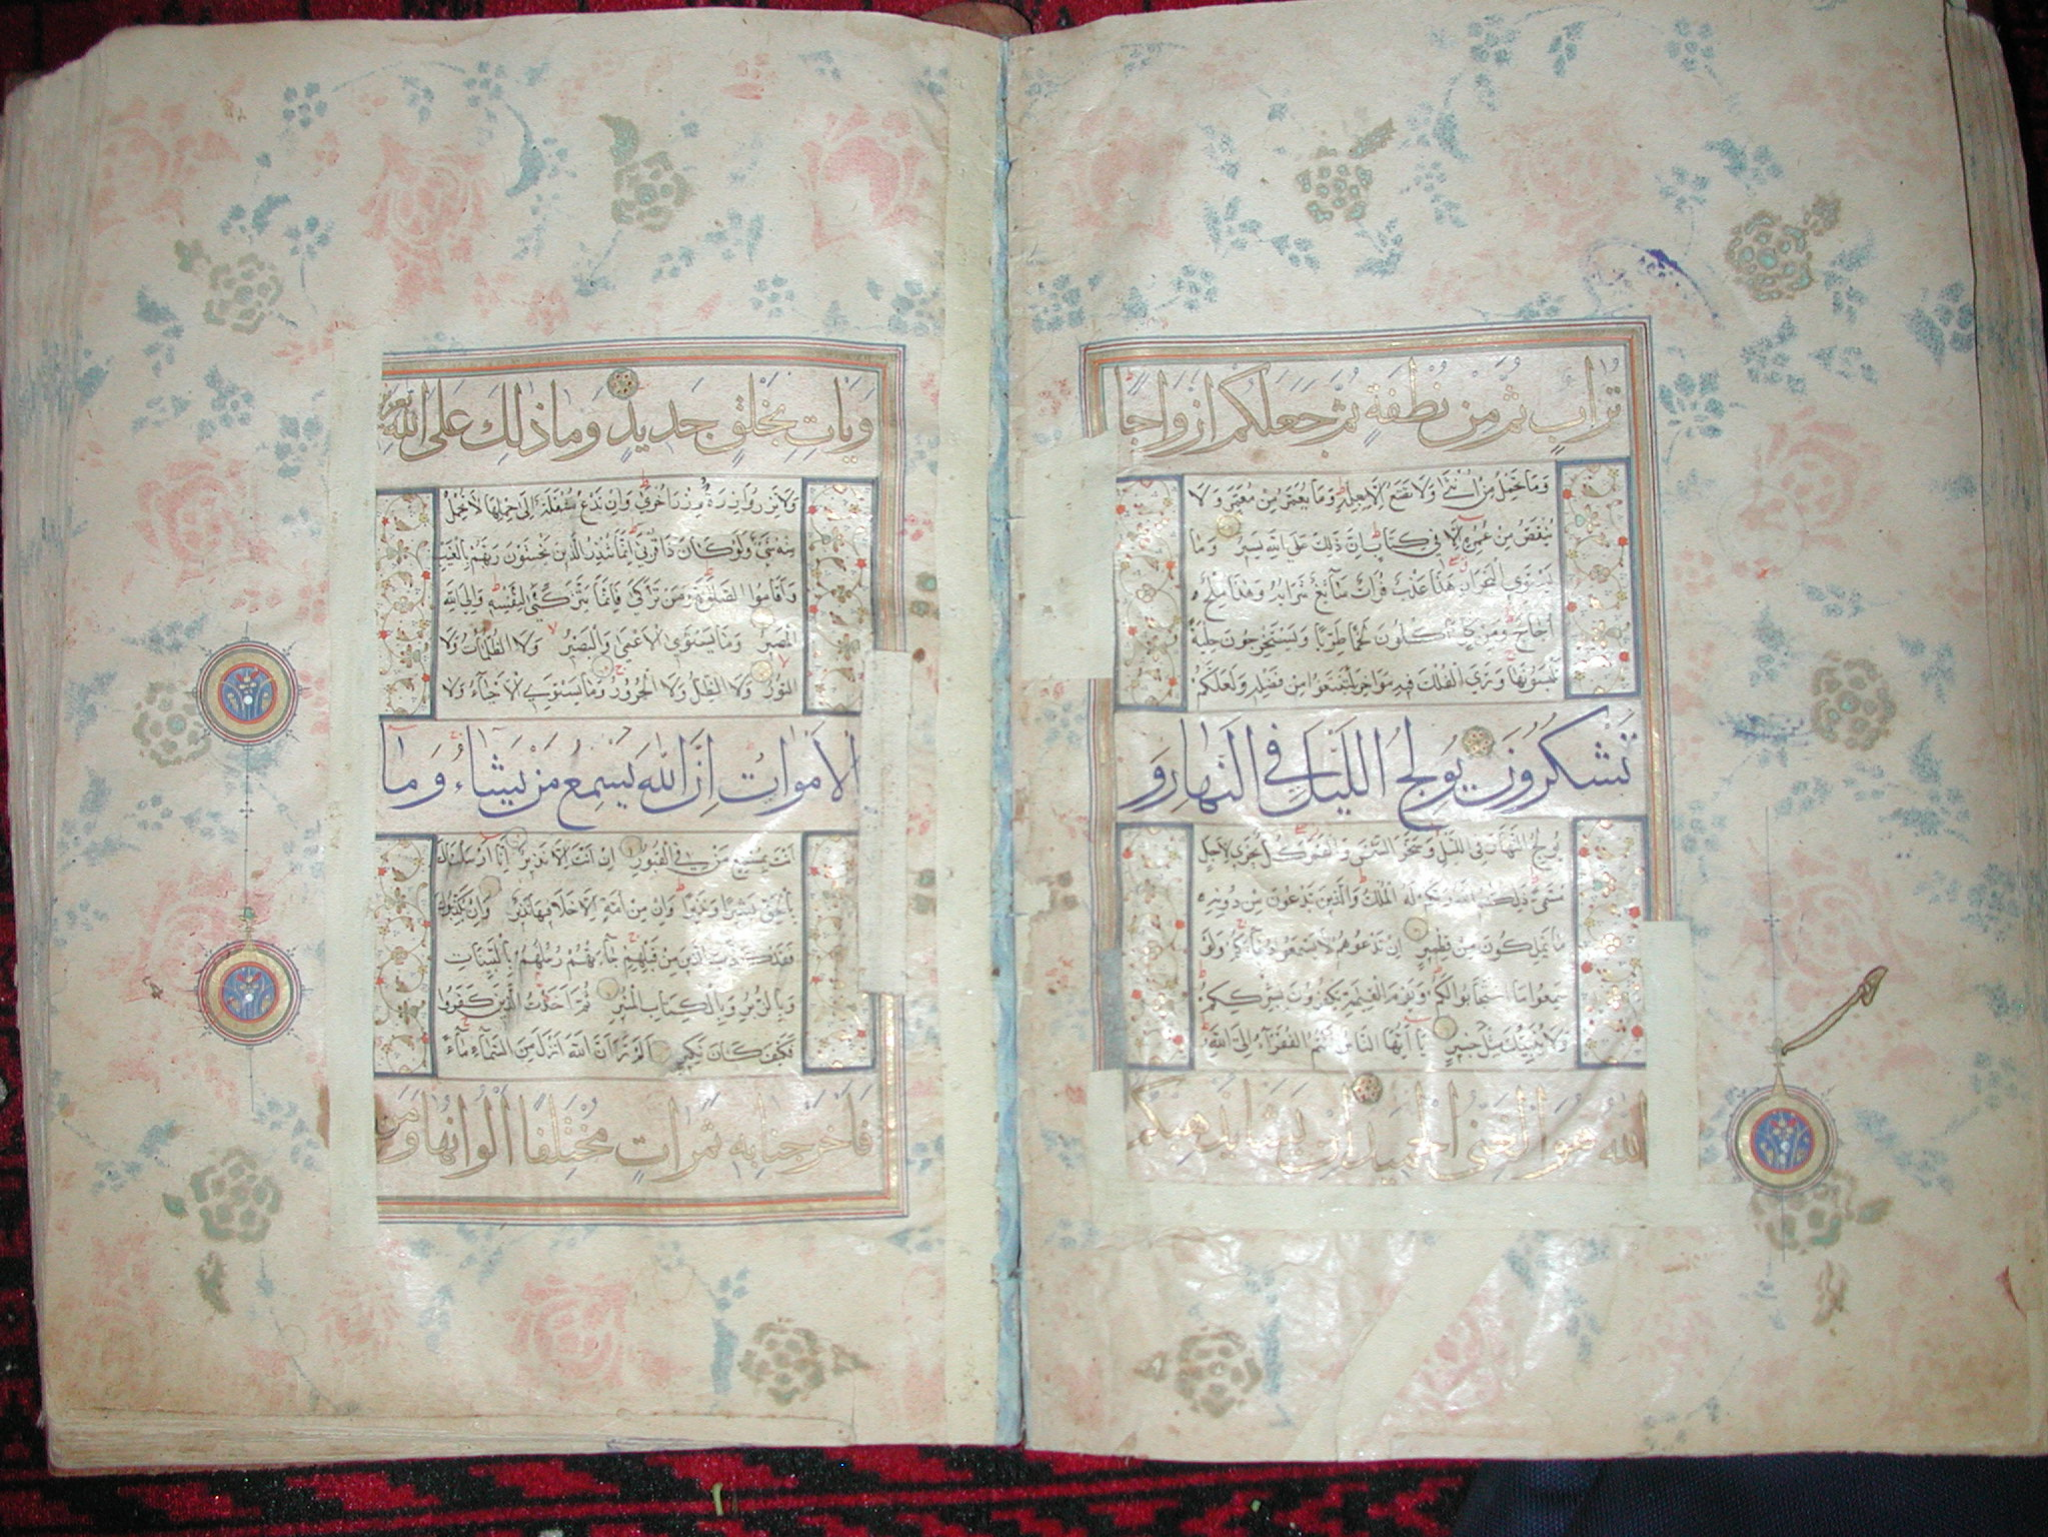 تُرَابٍ ثُمَّ مِنْ نُطْفَةٍ ثُمَّ جَعَلَكُمْ اَزْوَاجًا
وَمَا تَحْمِلُ مِنْ اُنْثٰى وَلَا تَضَعُ اِلَّا بِعِلْمِهِ وَمَا يُعَمَّرُ مِنْ مُعَمَّرٍ وَلَا
يُنْقَصُ مِنْ عُمُرِهِ اِلَّا فِي كِتَابٍ اِنَّ ذٰلِكَ عَلَى اللّٰهِ يَسِيرٌ وَمَا
يَسْتَوِي الْبَحْرَانِ هٰذَا عَذْبٌ فُرَاتٌ سَآئِغٌ شَرَابُهُ وَهٰذَا مِلْحٌ
اُجَاجٌ وَمِنْ كُلٍّ تَاْكُلُونَ لَحْمًا طَرِيًّا وَتَسْتَخْرِجُونَ حِلْيَةً
تَلْبَسُونَهَا وَتَرَى الْفُلْكَ فِيهِ مَوَاخِرَ لِتَبْتَغُوا مِنْ فَضْلِهِ وَلَعَلَّكُمْ
تَشْكُرُونَ يُولِجُ اللَّيْلَ فِي النَّهَارِ وَ
يُولِجُ النَّهَارَ فِي اللَّيْلِ وَسَخَّرَ الشَّمْسَ وَالْقَمَرَ كُلٌّ يَجْرِي لِاَجَلٍ
مُسَمًّى ذٰلِكُمُ اللّٰهُ رَبُّكُمْ لَهُ الْمُلْكُ وَالَّذِينَ تَدْعُونَ مِنْ دُونِهِ
مَا يَمْلِكُونَ مِنْ قِطْمِيرٍ اِنْ تَدْعُوهُمْ لَا يَسْمَعُوا دُعَآءَكُمْ وَلَوْ
سَمِعُوا مَا اسْتَجَابُوا لَكُمْ وَيَوْمَ الْقِيٰمَةِ يَكْفُرُونَ بِشِرْكِكُمْ
وَلَا يُنَبِّئُكَ مِثْلُ خَبِيرٍ يَا اَيُّهَا النَّاسُ اَنْتُمُ الْفُقَرَآءُ اِلَى اللّٰهِ
اللّٰهُ هُوَ الْغَنِيُّ الْحَمِيدُ اِنْ يَشَا يُذْهِبْكُمْ
وَيَاْتِ بِخَلْقٍ جَدِيدٍ وَمَا ذٰلِكَ عَلَى اللّٰهِ بِعَزِيزٍ
وَلَا تَزِرُ وَازِرَةٌ وِزْرَ اُخْرٰى وَاِنْ تَدْعُ مُثْقَلَةٌ اِلٰى حِمْلِهَا لَا يُحْمَلْ
مِنْهُ شَيْءٌ وَلَوْ كَانَ ذَا قُرْبٰى اِنَّمَا تُنْذِرُ الَّذِينَ يَخْشَوْنَ رَبَّهُمْ بِالْغَيْبِ
وَاَقَامُوا الصَّلٰوةَ وَمَنْ تَزَكّٰى فَاِنَّمَا يَتَزَكّٰى لِنَفْسِهِ وَاِلَى اللّٰهِ
الْمَصِيرُ وَمَا يَسْتَوِي الْاَعْمٰى وَالْبَصِيرُ وَلَا الظُّلُمَاتُ وَلَا
النُّورُ وَلَا الظِّلُّ وَلَا الْحَرُورُ وَمَا يَسْتَوِي الْاَحْيَآءُ وَلَا
الْاَمْوَاتُ اِنَّ اللّٰهَ يُسْمِعُ مَنْ يَشَاءُ وَمَا
اَنْتَ بِمُسْمِعٍ مَنْ فِي الْقُبُورِ اِنْ اَنْتَ اِلَّا نَذِيرٌ اِنَّا اَرْسَلْنَاكَ
بِالْحَقِّ بَشِيرًا وَنَذِيرًا وَاِنْ مِنْ اُمَّةٍ اِلَّا خَلَا فِيهَا نَذِيرٌ وَاِنْ يُكَذِّبُوكَ
فَقَدْ كَذَّبَ الَّذِينَ مِنْ قَبْلِهِمْ جَآءَتْهُمْ رُسُلُهُمْ بِالْبَيِّنَاتِ
وَبِالزُّبُرِ وَبِالْكِتَابِ الْمُنِيرِ ثُمَّ اَخَذْتُ الَّذِينَ كَفَرُوا
فَكَيْفَ كَانَ نَكِيرِ اَلَمْ تَرَ اَنَّ اللّٰهَ اَنْزَلَ مِنَ السَّمَآءِ مَآءً
فَاَخْرَجْنَا بِهِ ثَمَرَاتٍ مُخْتَلِفًا اَلْوَانُهَا وَمِنَ